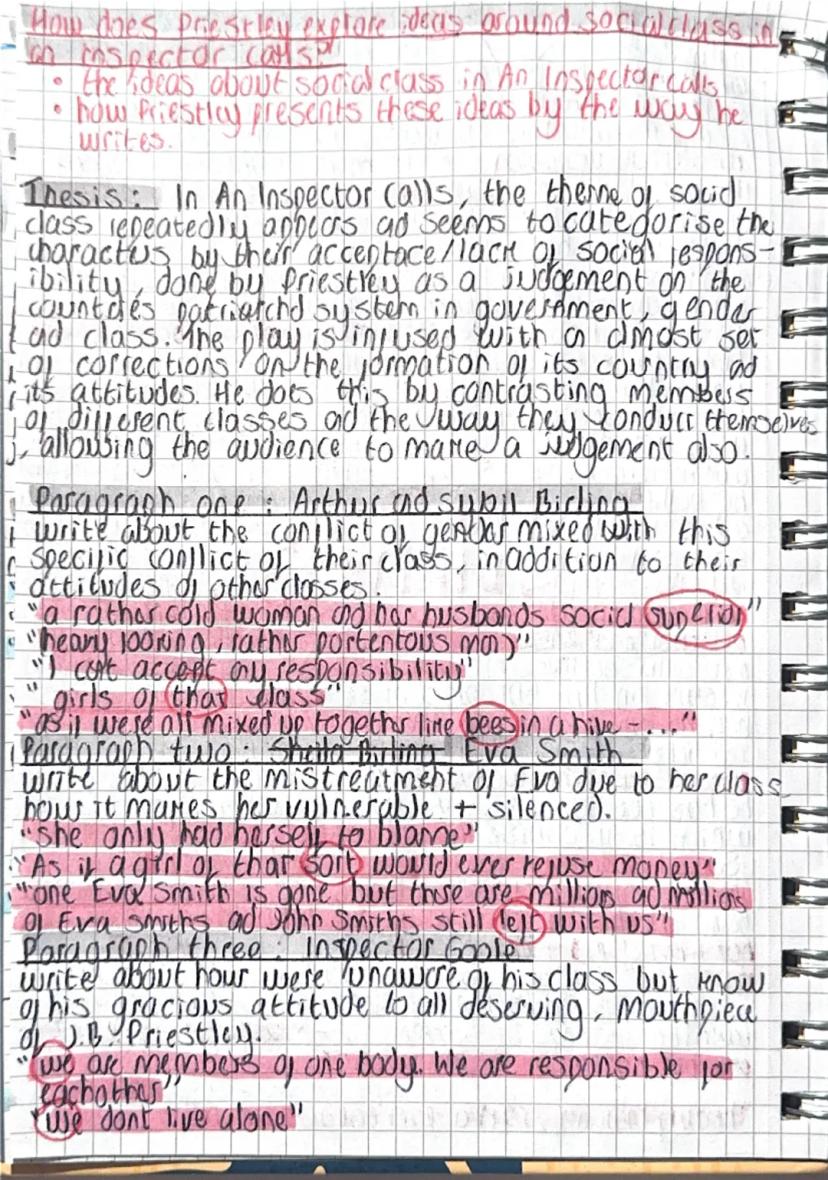 How does Priestley explore ideas around social class in
an inspector calls?
• the ideas about social class in An Inspector calls
• how Priestley presents these ideas by the way he
writes.
Thesis: In An Inspector Calls, the theme of social
class repeatedly appears ad seems to categorise the
characters by their acceptace/lack of social respons-
ibility, done by Priestley as a judgement on the
countries patriarchal system in government, gender
ad class. The play is infused with an almost set
of corrections on the formation of its country ad
its attitudes. He does this by contrasting members
of different classes ad the way they conduct themselves
, allowing the audience to make a judgement also.
Paragraph one: Arthur ad Sybil Birling
write about the conflict of gender mixed with this
specific conflict of their class, in addition to their
attitudes of other classes.
"a rather cold woman ad her husbands social superior"
"heavy looking, rather portentous man"
"I can't accept any responsibility"
"girls of that class"
"as if we're all mixed up together like bees in a hive -..."
Paragraph two: Sheila Birling Eva Smith
write about the mistreatment of Eva due to her class
how it makes her vulnerable + silenced.
"she only had herself to blame"
"As if a girl of that sort would ever refuse money"
"one Eva Smith is gone but there are millions ad millions
of Eva Smiths ad John Smiths still left with us"
Paragraph three: Inspector Goole
write about how were unaware of his class but know
of his gracious attitude to all deserving, mouthpiece
of J.B. Priestley.
"we are members of one body. We are responsible for
eachother"
"we dont live alone"